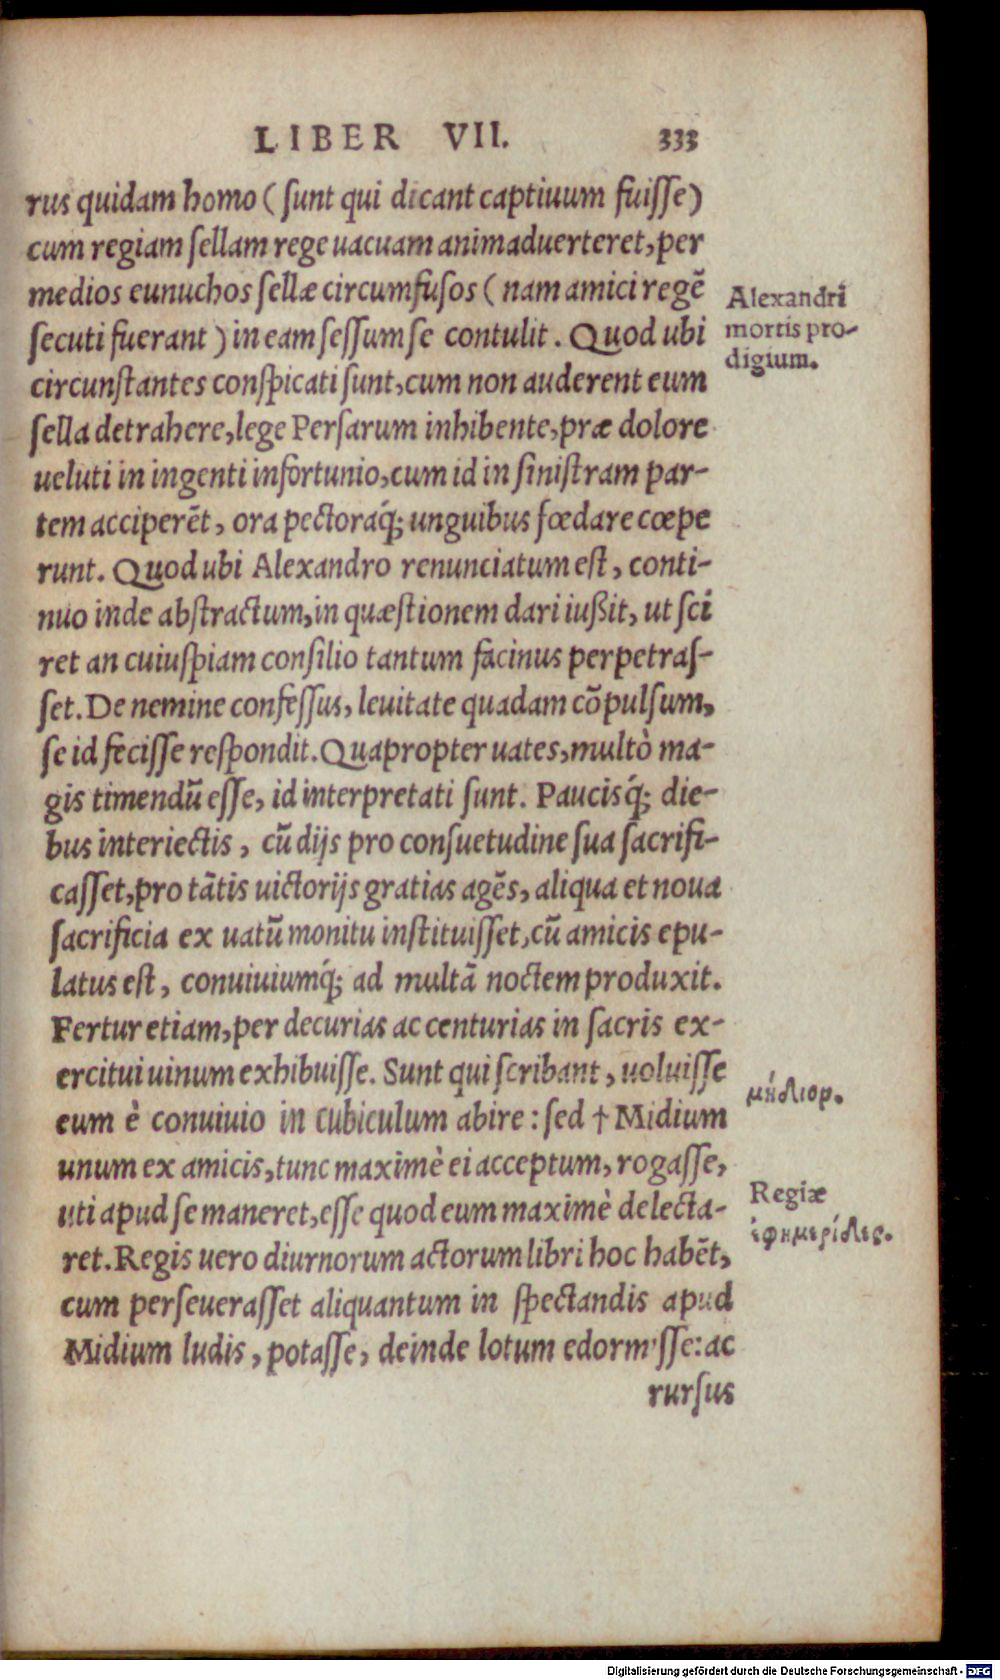 LIBER VII. 333
rus quidam homo (ſunt qui dicant captiuum fuiſſe)
cum regiam ſellam rege uacuam animaduerteret, per
medios eunuchos ſellæ circumfuſos (nam amici regē
ſecuti fuerant) in eam ſeſſum ſe contulit. Quod ubi
circunſtantes conſpicati ſunt, cum non auderent eum
ſella detrahere, lege Perſarum inhibente, præ dolore
ueluti in ingenti infortunio, cum id in ſiniſtram par-
tem acciperēt, ora pectoraq́; unguibus fœdare cœpe
runt. Quod ubi Alexandro renunciatum eſt, conti-
nuo inde abſtractum, in quæſtionem dari iußit, ut ſci
ret an cuiuſpiam conſilio tantum facinus perpetraſ-
ſet. De nemine confeſſus, leuitate quadam cōpulſum,
ſe id feciſſe reſpondit. Quapropter uates, multò ma-
gis timendū eſſe, id interpretati ſunt. Paucisq́; die-
bus interiectis, cū dijs pro conſuetudine ſua ſacrifi-
caſſet, pro tātis uictorijs gratias agēs, aliqua et noua
ſacrificia ex uatū monitu inſtituiſſet, cū amicis epu-
latus eſt, conuiuiumq́; ad multā noctem produxit.
Fertur etiam, per decurias ac centurias in ſacris ex-
ercitui uinum exhibuiſſe. Sunt qui ſcribant, uoluiſſe
eum è conuiuio in cubiculum abire: ſed † Midium
unum ex amicis, tunc maximè ei acceptum, rogaſſe,
uti apud ſe maneret, eſſe quod eum maximè delecta-
ret. Regis uero diurnorum actorum libri hoc habēt,
cum perſeueraſſet aliquantum in ſpectandis apud
Midium ludis, potaſſe, deinde lotum edormiſſe: ac
rurſus
Alexandri
mortis pro-
digium.
μήδιορ.
Regiæ
ἐφημερίδες.
Digitalisierung gefördert durch die Deutsche Forschungsgemeinschaft - DFG